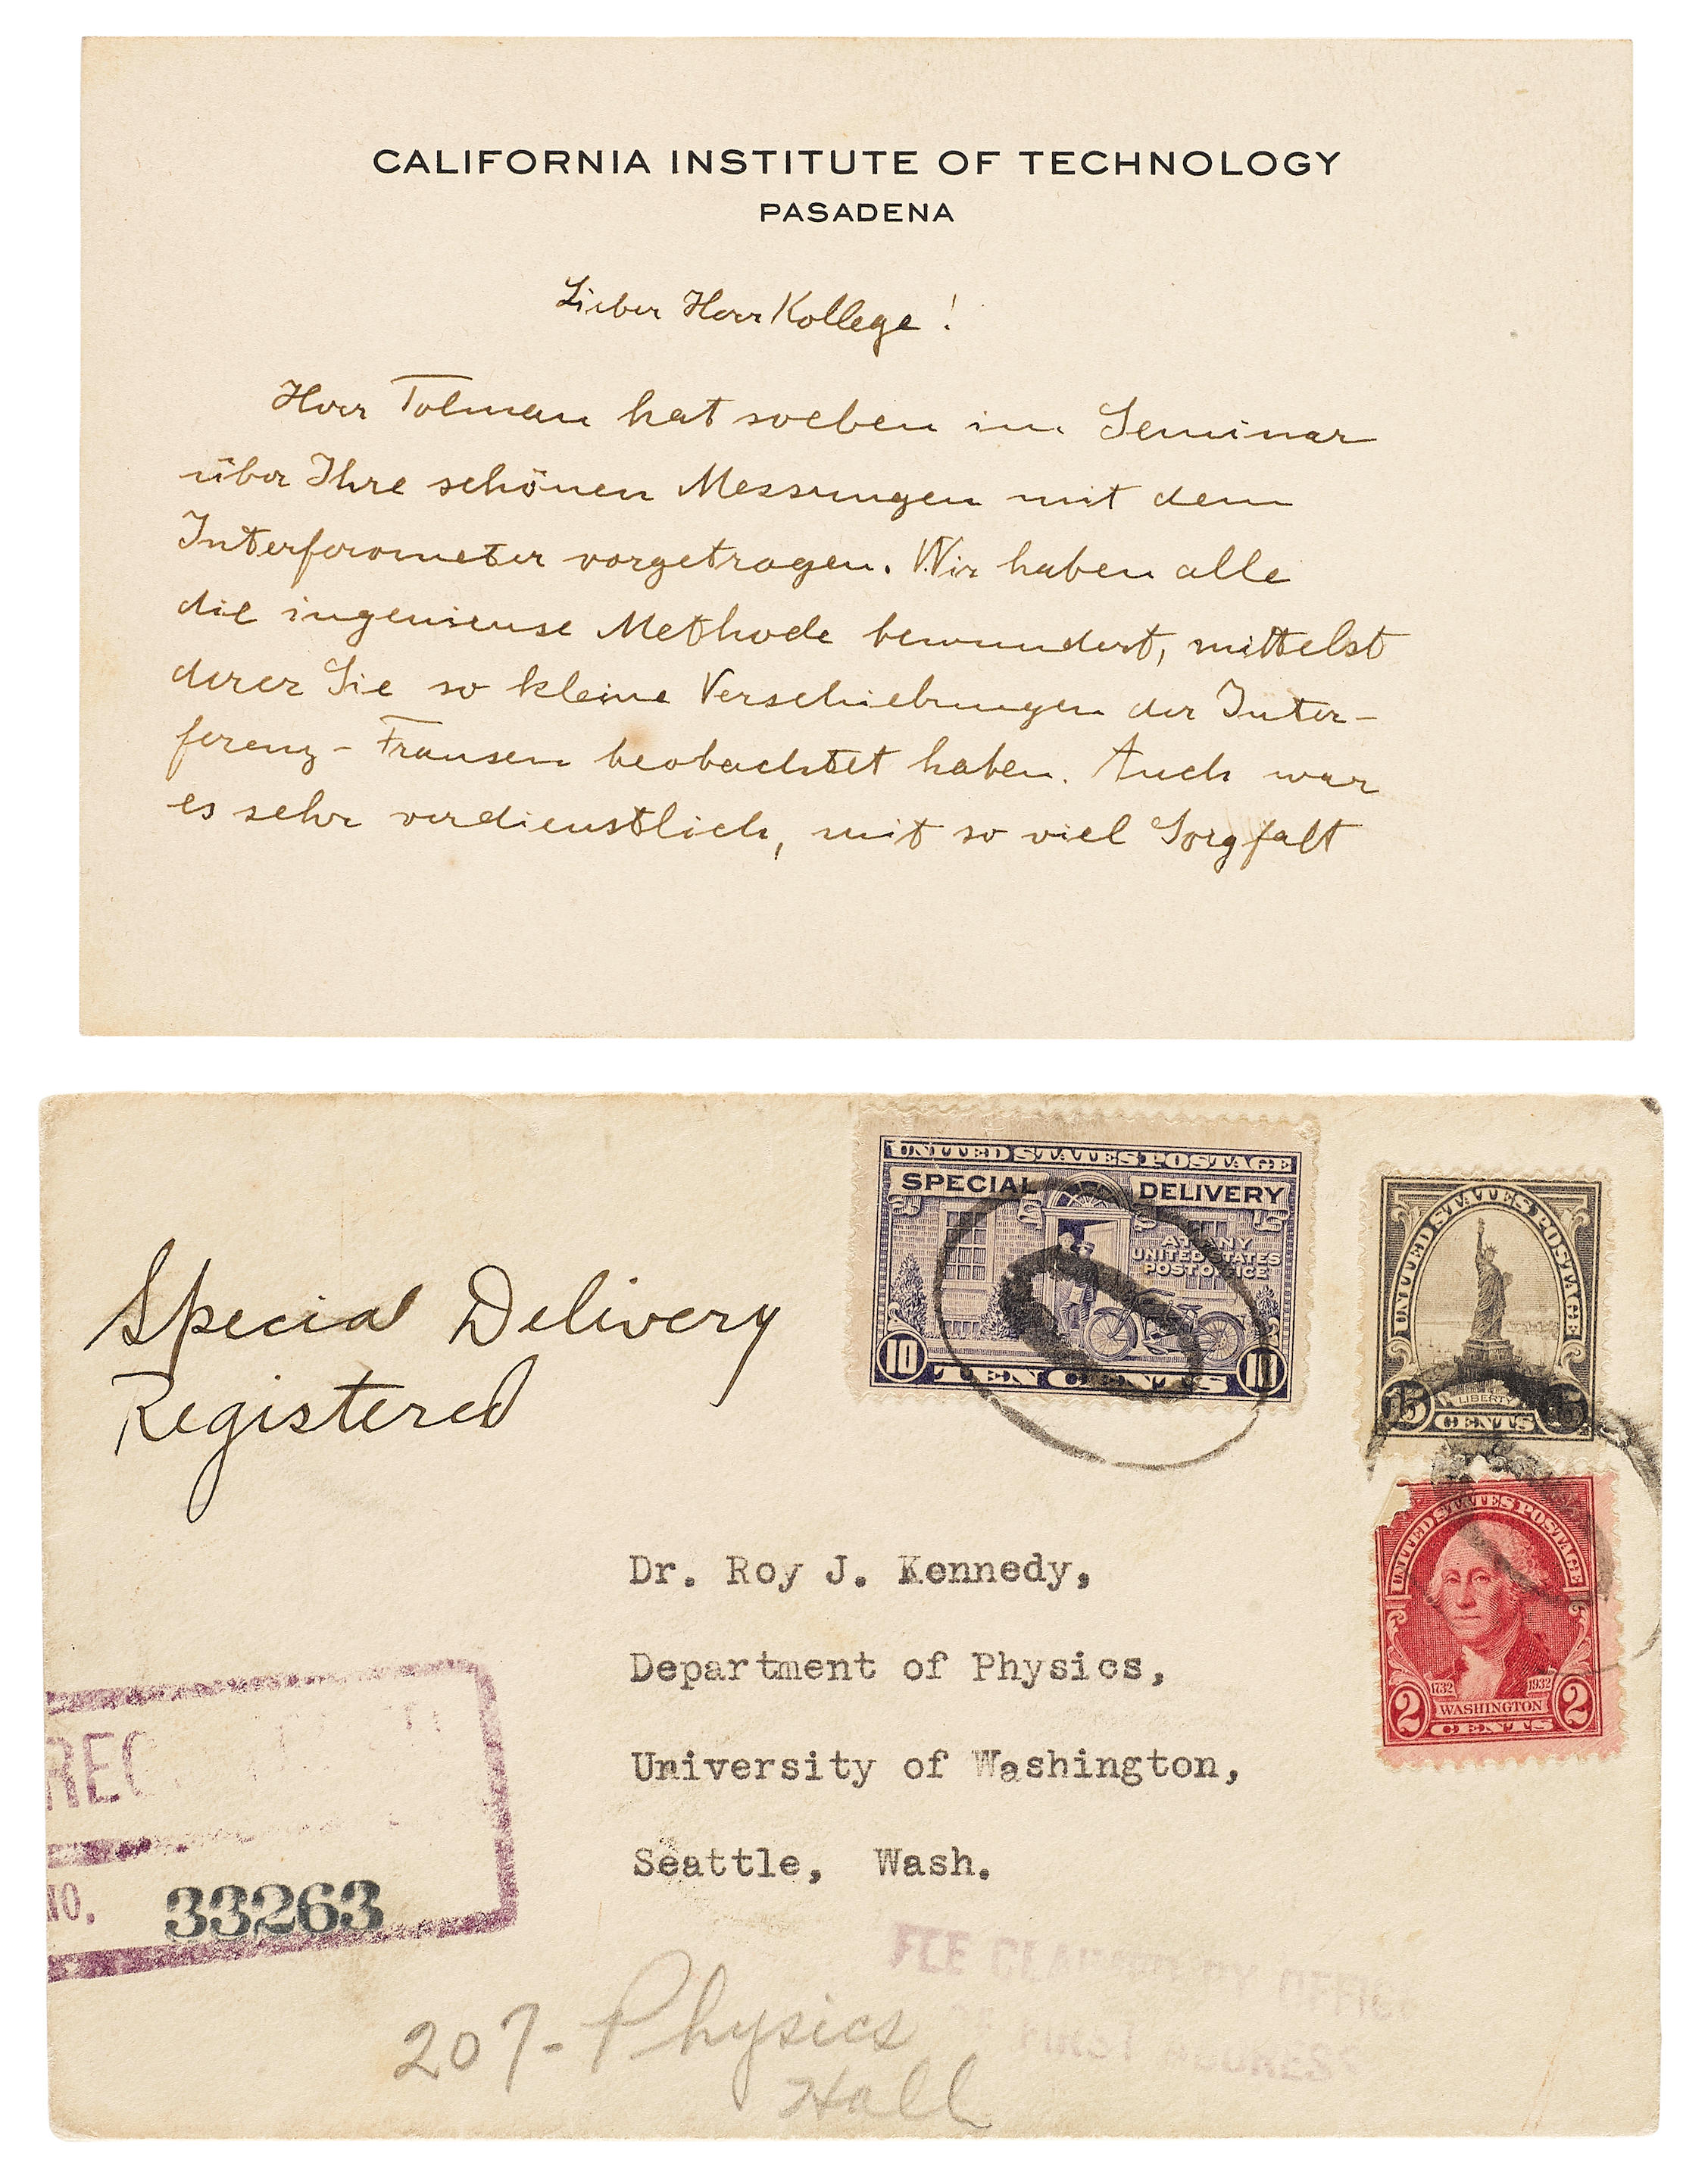 CALIFORNIA INSTITUTE OF TECHNOLOGY
PASADENA
Lieber Herr Kollege!
Herr Tolman hat soeben im Seminar
über Ihre schönen Messungen mit dem
Interferometer vorgetragen. Wir haben alle
die ingenieuse Methode bewundert, mittelst
derer Sie so kleine Verschiebungen der Inter-
ferenz-Fransen beobachtet haben. Auch war
es sehr verdienstlich, mit so viel Sorgfalt
UNITED STATES POSTAGE
SPECIAL DELIVERY
AT ANY
UNITED STATES
POST OFFICE
10 TEN CENTS 10
UNITED STATES POSTAGE
LIBERTY
15 CENTS 15
Special Delivery
Registered
UNITED STATES POSTAGE
1732 1932
2 WASHINGTON 2
CENTS
Dr. Roy J. Kennedy,
Department of Physics,
University of Washington,
Seattle, Wash.
REC
NO. 33263
FEE CLAIMED BY OFFICE
OF FIRST ADDRESS
207-Physics
Hall